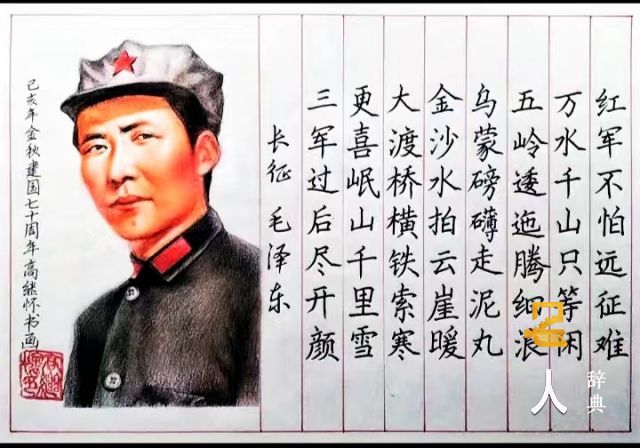 红军不怕远征难
万水千山只等闲
五岭逶迤腾细浪
乌蒙磅礴走泥丸
金沙水拍云崖暖
大渡桥横铁索寒
更喜岷山千里雪
三军过后尽开颜
长征 毛泽东
己亥年金秋建国七十周年高继怀书画
人
辞典